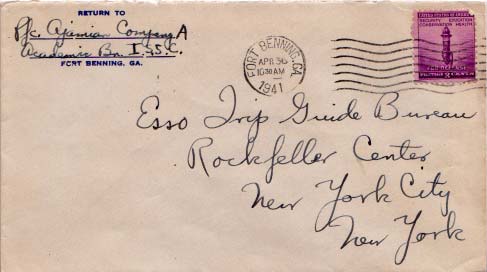 RETURN TO
Pfc. Ajamian Company A
Academic Bn. I.S.C.
FORT BENNING, GA.
FORT BENNING, GA.
APR 30
10:30 AM
1941
UNITED STATES OF AMERICA
SECURITY EDUCATION
CONSERVATION HEALTH
FOR DEFENSE
Esso Trip Guide Bureau
Rockfeller Center
New York City
New York